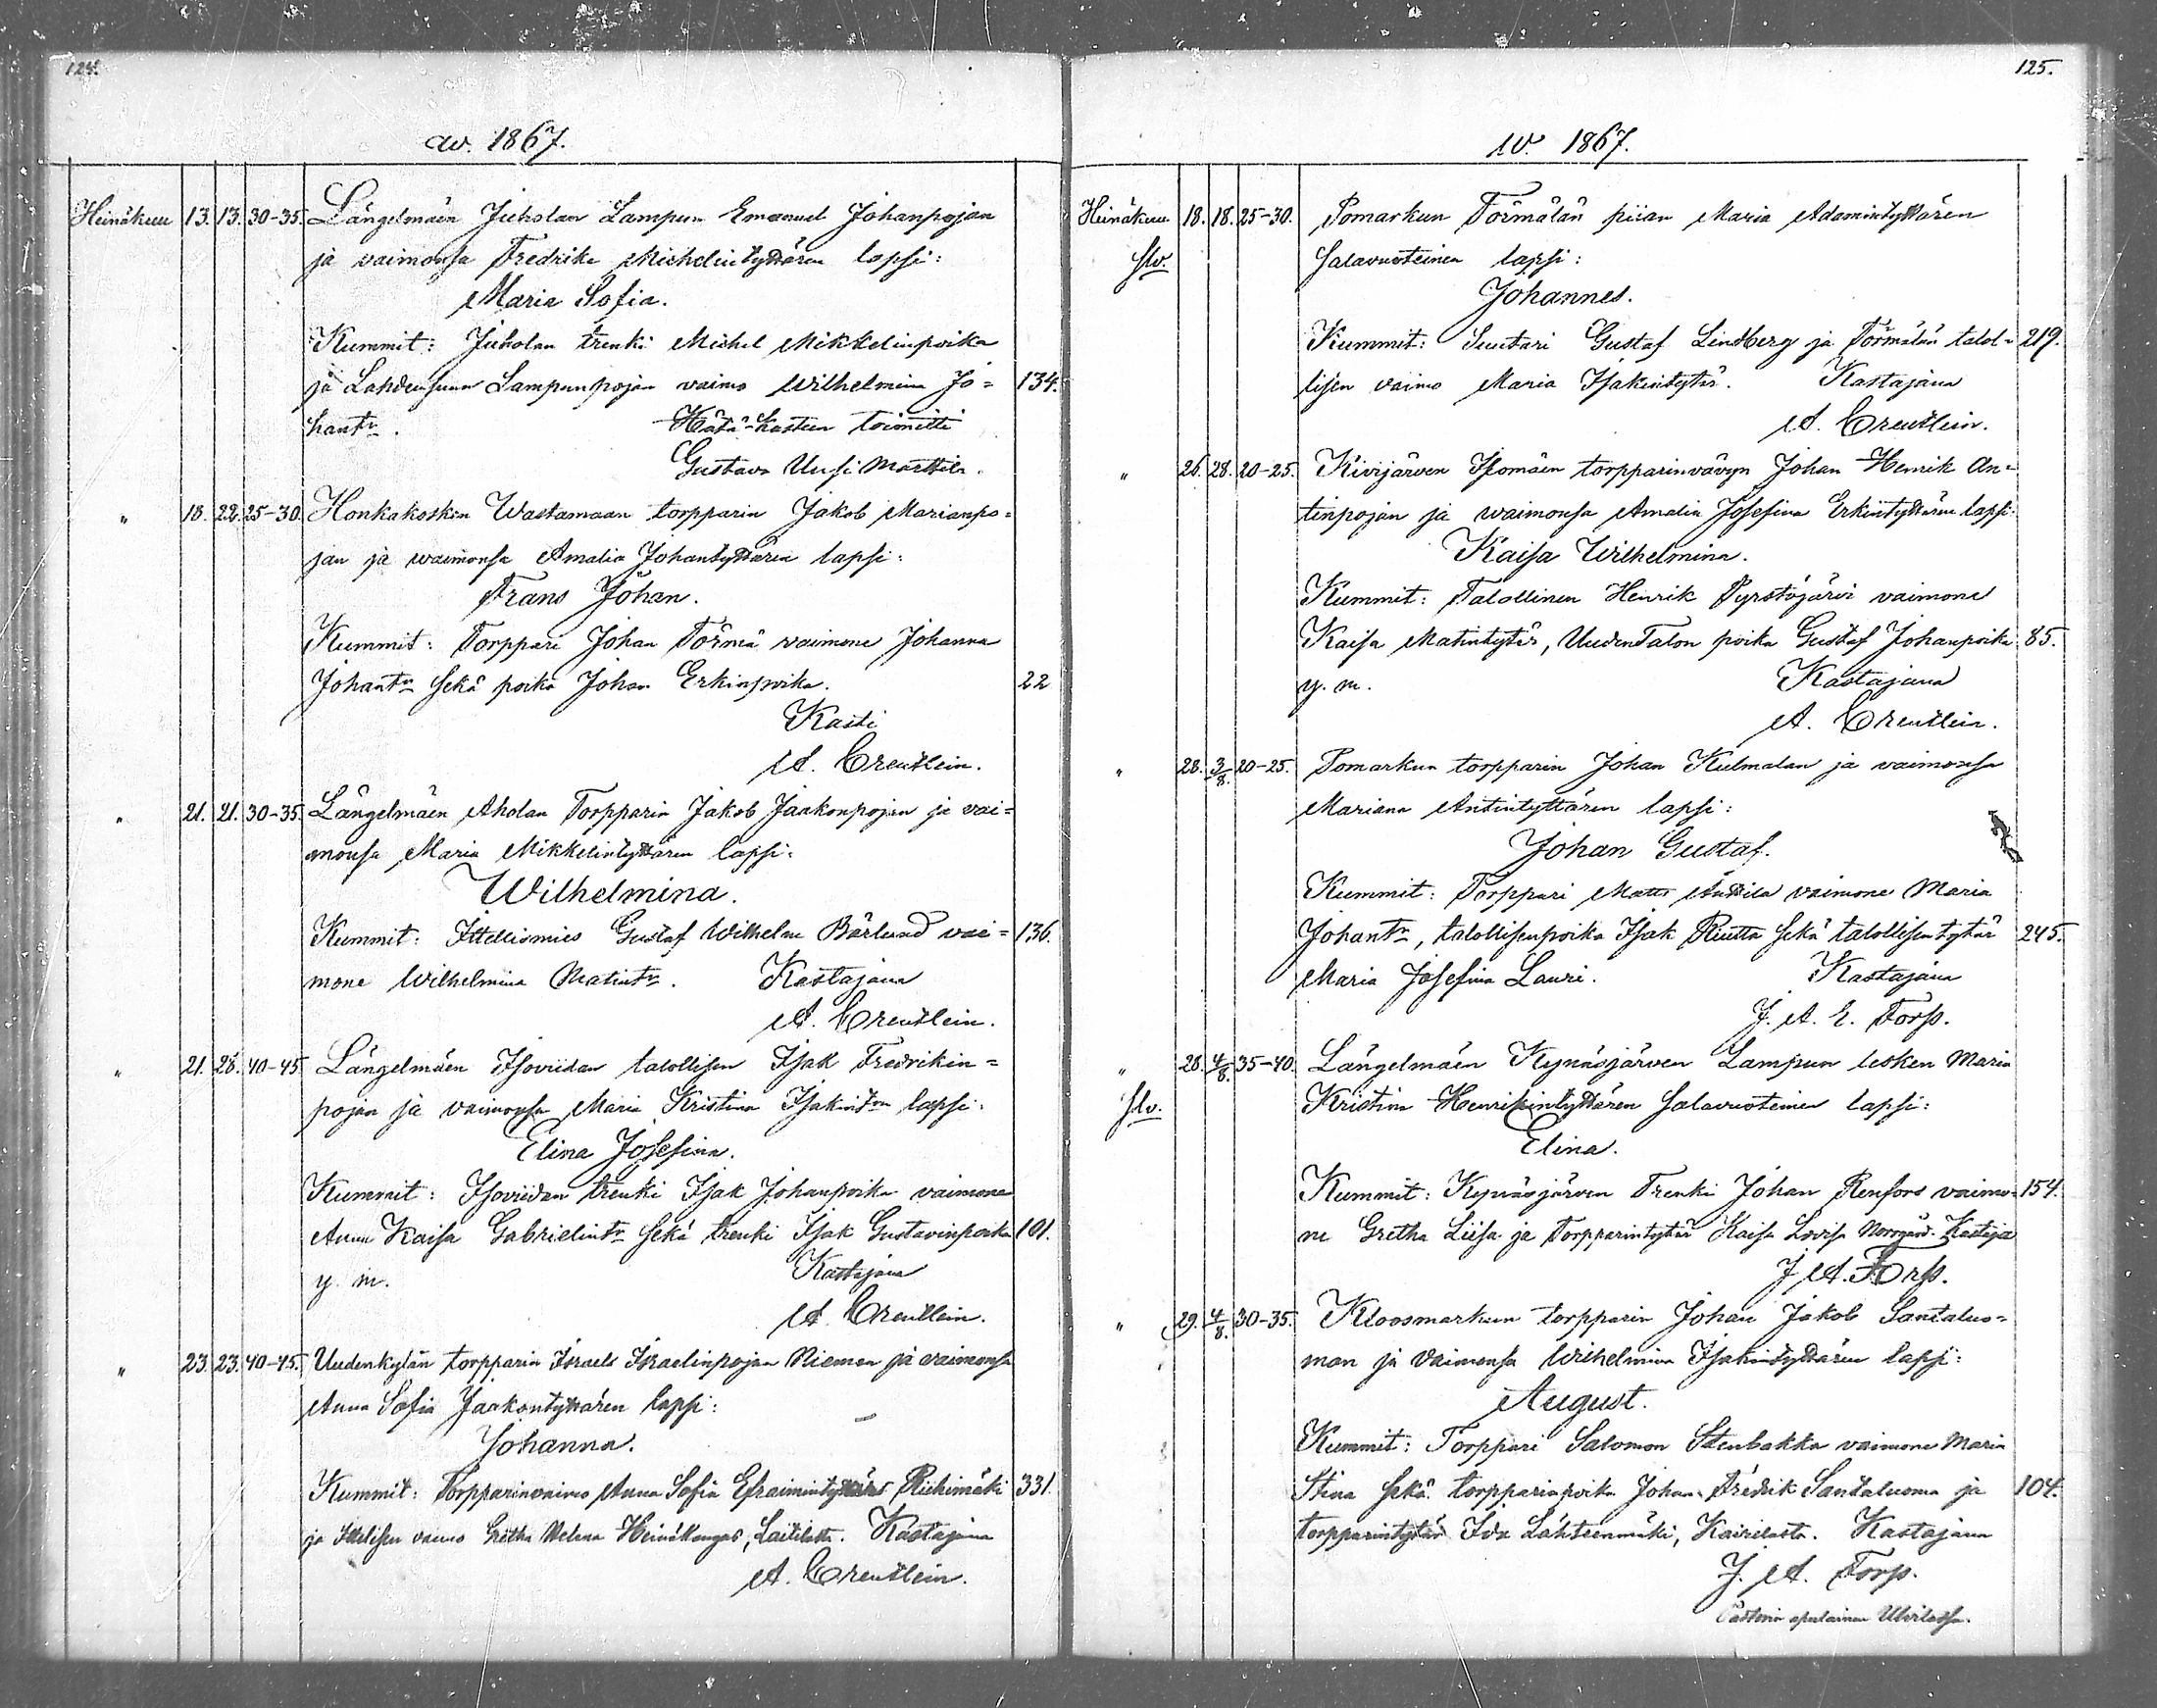 124.
w. 1867.
Heinäkuu 13. 13. 30-35. Längelmäen Juholan Lampun Emanuel Johanpojan
ja vaimonsa Fredrika Michelintyttären lapsi:
Maria Sofia.
Kummit: Juholan trenki Michel Mikkelinpoika
ja Lahdensuun Lampunpojan vaimo Wilhelmina Jo= 134.
hantr. Hätä-kasteen toimitti
Gustava Uusi Marttila.
" 18. 22. 25-30. Honkakosken Wastamaan torpparin Jakob Marianpo=
jan ja waimonsa Amalia Johantyttären lapsi:
Frans Johan.
Kummit: Torppari Johan Törmä vaimone Johanna
Johantr sekä poika Johan Erkinpoika. 22
Kasti
A. Creutlein.
" 21. 21. 30-35. Längelmäen Aholan Torpparin Jakob Jaakonpojan ja vai=
monsa Maria Mikkelintyttären lapsi:
Wilhelmina.
Kummit: Ittellismies Gustaf Wilhelm Bärlund vai= 136.
mone Wilhelmina Matintr. Kastajana
A. Creutlein.
" 21. 28. 40-45. Längelmäen Isoviidan talollisen Isak Fredrikin=
pojan ja vaimonsa Maria Kristina Isakintrn lapsi:
Elina Josefina.
Kummit: Isoviidan trenki Isak Johanpoika vaimone
Anna Kaisa Gabrielintr sekä trenki Isak Gustavinpoika 101.
y. m. Kastajana
A. Creutlein.
" 23. 23. 40-45. Uudenkylän torpparin Israels Israelinpojan Niemen ja vaimonsa
Anna Sofia Jaakontyttären lapsi:
Johanna.
Kummit: Torpparinvaimo Anna Sofia Efraimintytär Riihimäki 331.
ja Ittelisen vaimo Gretha Helena Heinäkangas, Laitilasta. Kastajana
A. Creutlein.
125.
w. 1867.
Heinäkuu 18. 18. 25-30. Pomarkun Törmälän piian Maria Adamintyttären
slv. salavuoteinen lapsi:
Johannes.
Kummit: Suutari Gustaf Lindberg ja Törmälän talol= 219.
lisen vaimo Maria Isakintytär. Kastajana
A. Creutlein.
" 26. 28. 20-25. Kivijärven Isomäen torpparinvävyn Johan Henrik An=
tinpojan ja waimonsa Amalia Josefina Erkintyttären lapsi:
Kaisa Wilhelmina.
Kummit: Talollinen Henrik Pyrstöjärvi vaimone
Kaisa Matintytär, UudenTalon poika Gustaf Johanpoika 85.
y. m. Kastajana
A. Creutlein.
" 28. 3/8. 20-25. Pomarkun torpparin Johan Kulmalan ja vaimonsa
Mariana Antintyttären lapsi:
Johan Gustaf.
Kummit: Torppari Matts Anttila vaimone Maria
Johantr, talollisenpoika Isak Ruutta sekä talollisen tytär 245.
Maria Josefina Lauri. Kastajana
J. A. E. Forss.
" 28. 4/8. 35-40. Längelmäen Kynäsjärven Lampun lesken Maria
slv. Kristina Henrikintyttären salavuoteinen lapsi:
Elina.
Kummit: Kynäsjärven Trenki Johan Renfors vaimo= 154.
ne Gretha Liisa ja Torpparintytär Kaisa Lovisa Norrgård. Kastaja
J. A. Forss.
" 29. 4/8. 30-35. Kloosmarkun torpparin Johan Jakob Santaluo=
man ja vaimonsa Wilhelmina Isakintyttären lapsi:
August.
Kummit: Torppari Salomon Stenbakka vaimone Maria
Stina sekä torpparinpoika Johan Fredrik Santaluoma ja 104.
torpparintytär Ida Lähteenmäki, Kairilasta. Kastajana
J. A. Forss.
Pastorin apulainen Ulvilassa.